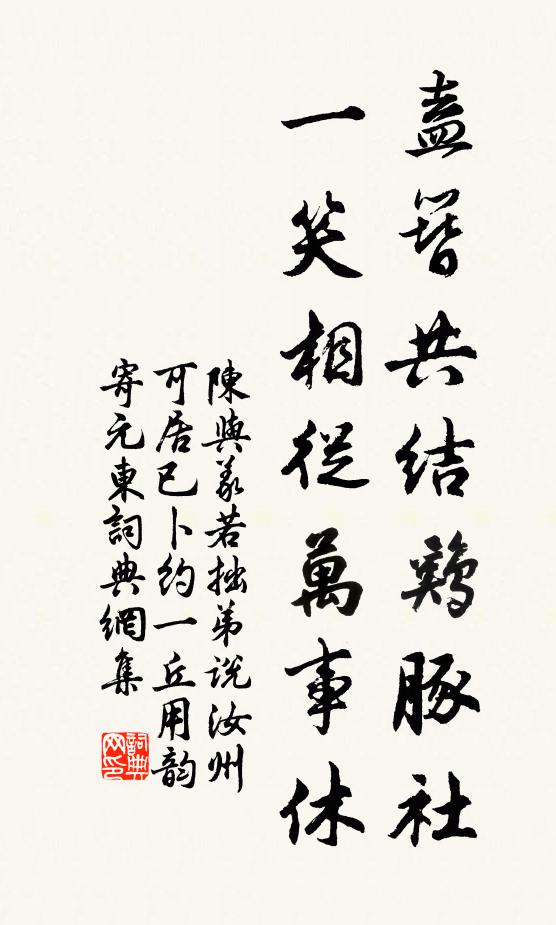 盍簪共結鷄豚社
一笑相從萬事休
陳與義若拙弟説汝州
可居已卜約一丘用韵
寄元東詞典網集
詞典
网印